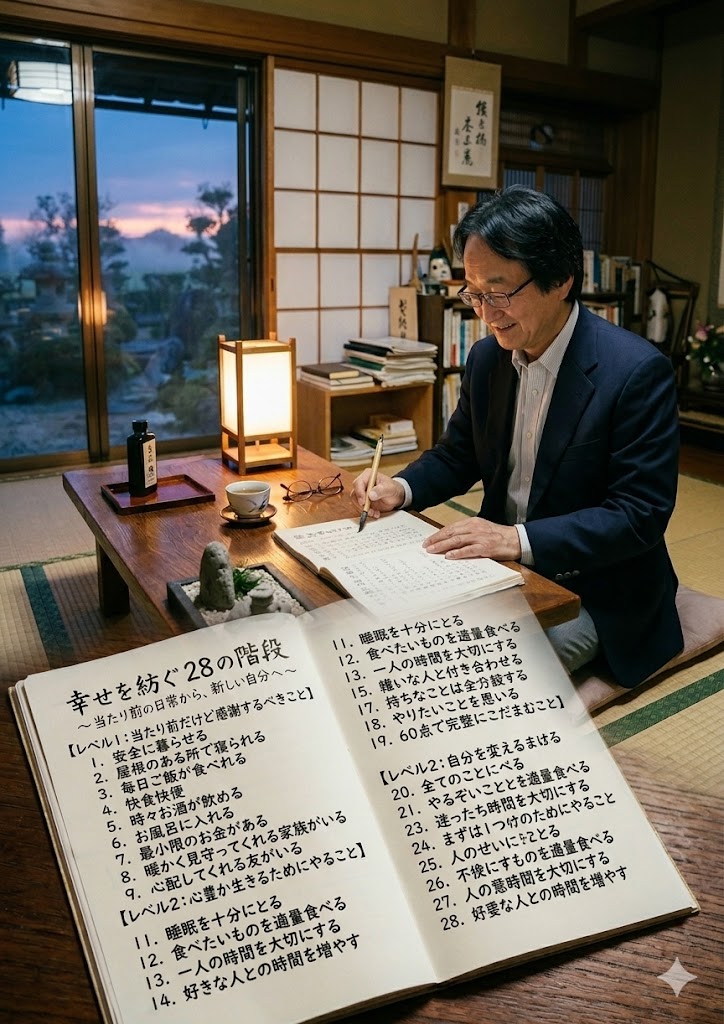 幸せを紡ぐ28の階段
～当たり前の日常から、新しい自分へ～
【レベル1:当たり前だけど感謝するべきこと】
1. 安全に暮らせる
2. 屋根のある所で寝られる
3. 毎日ご飯が食べれる
4. 快食快便
5. 時々お酒が飲める
6. お風呂に入れる
7. 最小限のお金がある
8. 暖かく見守ってくれる家族がいる
9. 心配してくれる友がいる
【レベル2:心豊か生きるためにやること】
11. 睡眠を十分にとる
12. 食べたいものを適量食べる
13. 一人の時間を大切にする
14. 好きな人との時間を増やす
11. 睡眠を十分にとる
12. 食べたいものを適量食べる
13. 一人の時間を大切にする
15. 人と付き合わせる
17. 持ちなことは全
18. やりたいことを思いる
19. 60点で完整にこだまむこと】
【レベル2:自分を変えるまける
20. 全てのことにべる
21. やるぞいこととを適量食べる
23. 迷ったち時間を大切にする
24. まずは1つ のためにやること
25. 人のせいに とる
26. 不後にすものを適量食べる
27. 人の 時間を大切にする
28. 好 な人との時間を増やす